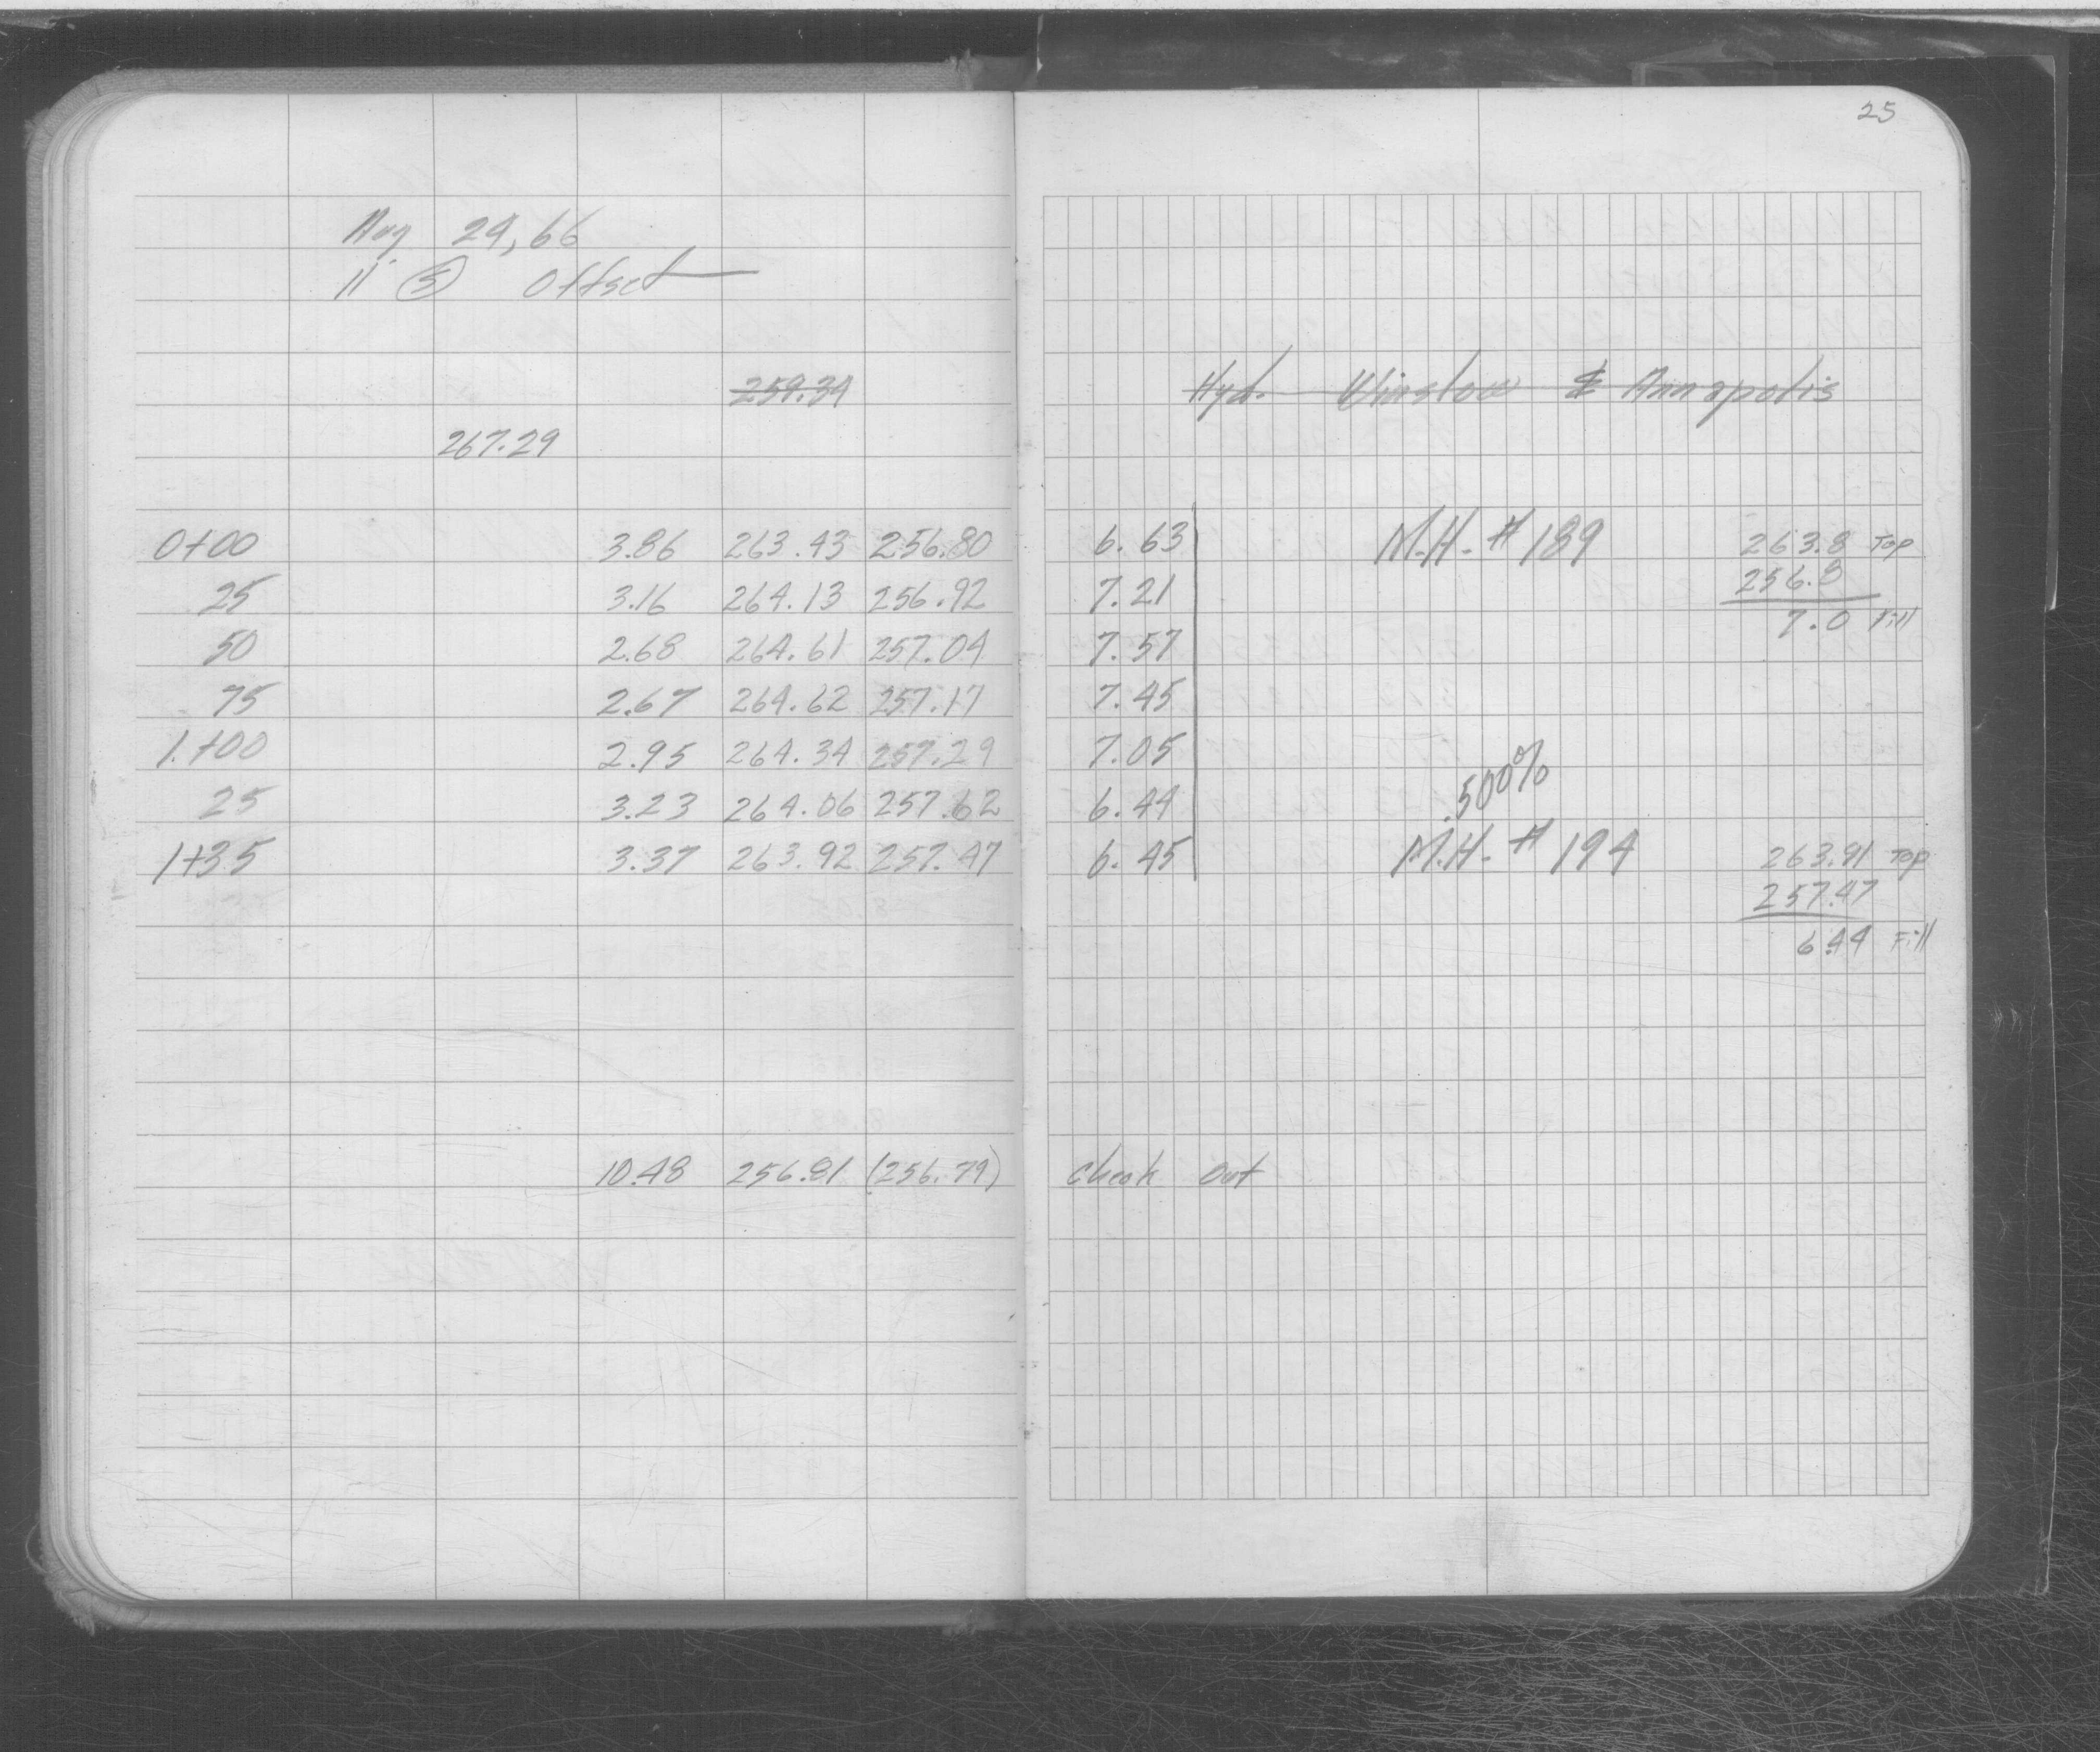 25
Aug 29, 66
11' (5) Offset
259.34 Hyd. Winslow & Annapolis
267.29
0+00 3.86 263.43 256.80 6.63 M.H. # 189 263.8 Top
25 3.16 264.13 256.92 7.21 256.8
50 2.68 264.61 257.04 7.57 7.0 Fill
75 2.67 264.62 257.17 7.45
1+00 2.95 264.34 257.29 7.05
.500%
25 3.23 264.06 257.62 6.44
1+35 3.37 263.92 257.47 6.45 M.H. # 194 263.91 Top
257.47
6.44 Fill
10.48 256.81 (256.79) Check Out